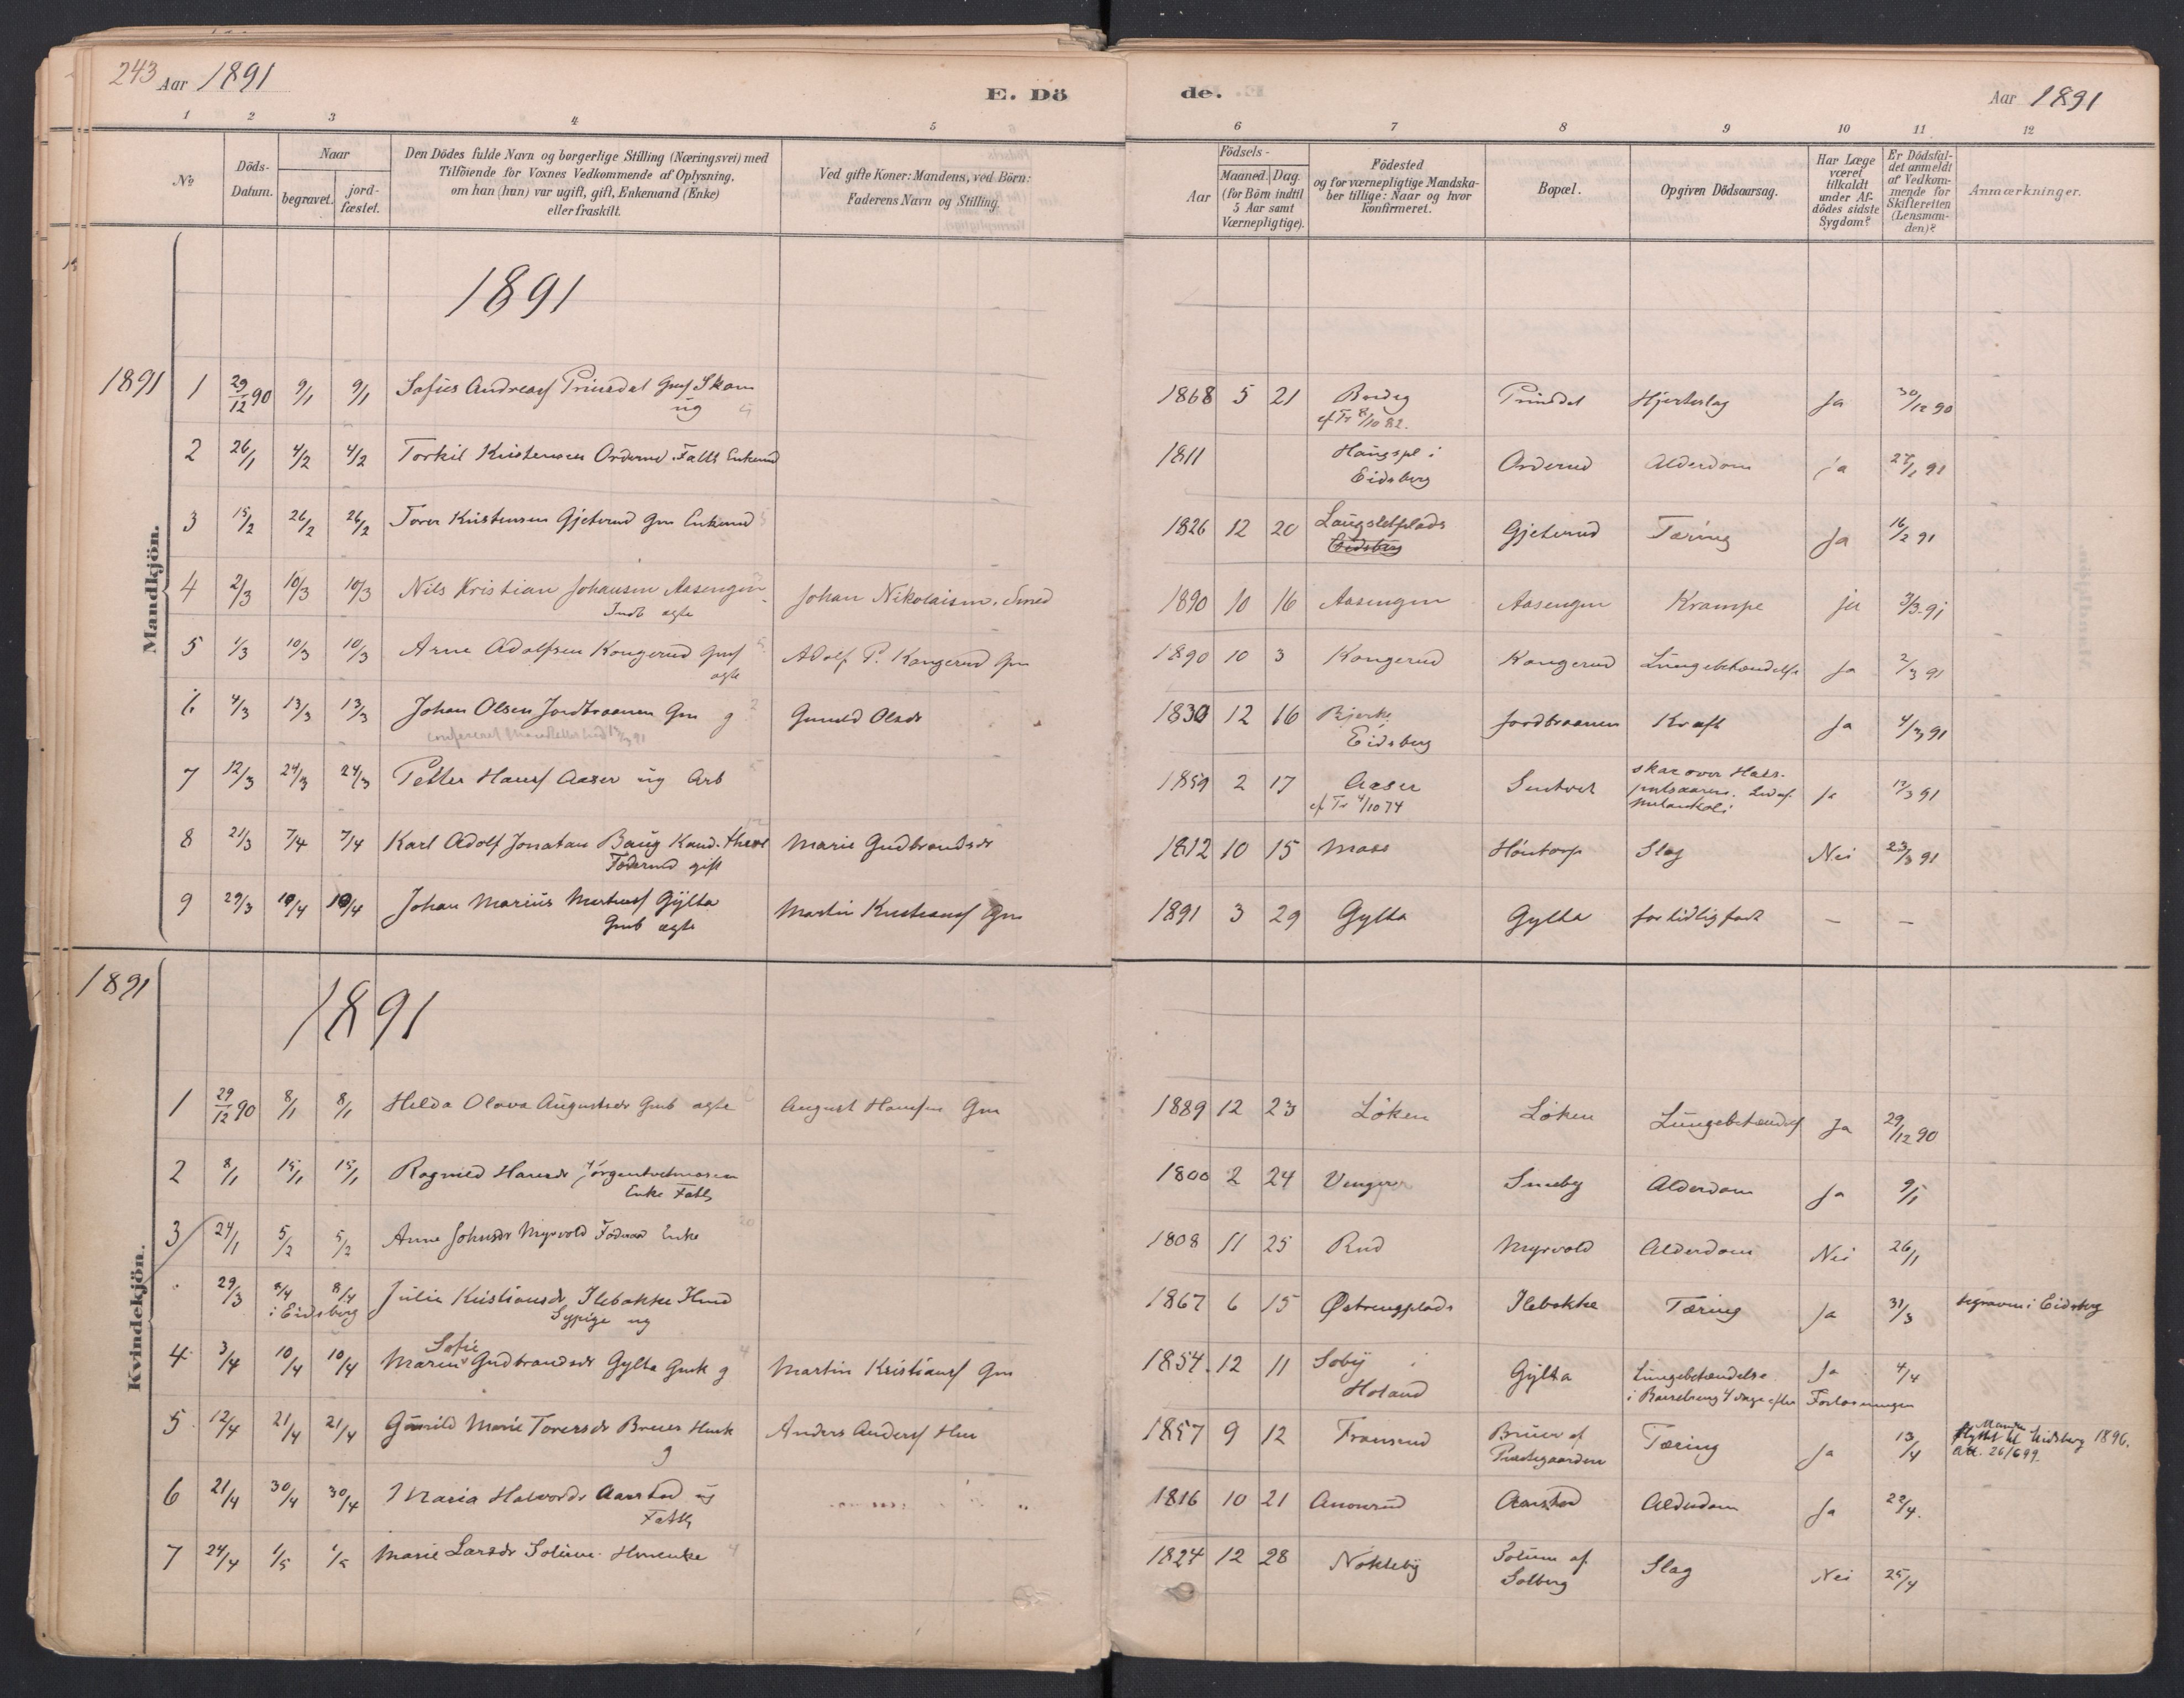 243 Aar 1891
E. Döde.
Aar 1891
1 2 3 4 5 6 7 8 9 10 11 12
No
Döds-Datum.
Naar
begravet.
jordfæstet.
Den Dödes fulde Navn og borgerlige Stilling (Næringsvei) med
Tilföiende for Voxnes Vedkommende af Oplysning,
om han (hun) var ugift, gift, Enkemand (Enke)
eller fraskilt.
Ved gifte Koner: Mandens, ved Börn:
Faderens Navn og Stilling.
Födsels-
Aar
Maaned. Dag.
(for Börn indtil
5 Aar samt
Værnepligtige).
Födested
og for værnepligtige Mandska-
ber tillige: Naar og hvor
konfirmeret.
Bopæl.
Opgiven Dödsaarsag.
Har Læge
været
tilkaldt
under Af-
dödes sidste
Sygdom?
Er Dödsfal-
det anmeldt
af Vedkom-
mende for
Skifteretten
(Lensman-
den)?
Anmærkninger.
Mandkjön.
1891
1891 1 29/12 90 9/1 9/1 Sofus Andreas Prinsdal Skom 1868 5 21 Prinsdal Hjerteslag Ja 30/12 90
ug 8/10 82.
2 26/1 4/2 4/2 Torkil Kristensen Orderud Fattl Enkemd 1811 Haugspl i Orderud Alderdom ja 27/1 91
Eidsberg
3 15/2 26/2 26/2 Torer Kristensen Gjeterud Gm Enkemd 1826 12 20 Langsletplads Gjeterud Tæring Ja 16/2 91
Eidsberg
4 2/3 10/3 10/3 Nils Kristian Johansen Aasengen Johan Nikolaisen, Smed 1890 10 16 Aasengen Aasengen Krampe ja 3/3 91
Indb ægte
5 1/3 10/3 10/3 Arne Adolfsen Kongerud Adolf P. Kongerud Gm 1890 10 3 Kongerud Kongerud Lungebetændelse Ja 2/3 91
ægte
6 4/3 13/3 13/3 Johan Olsen Jordbraaten Gm g Gunild Olsdr 1830 12 16 Bjerke Jordbraaten Kræft Ja 4/3 91
Eidsberg
7 12/3 24/3 24/3 Petter Hansf Aaser ug Arb 1859 2 17 Aaser Sentvet skar over Hals- Ja 12/3 91
4/10 74 pulsaaren. Led af
melankoli
8 21/3 7/4 7/4 Karl Adolf Jonatan Baug Kand. theol Marie Gudbrandsdr 1812 10 15 Moss Höntorp Slag Nei 23/3 91
Föderaad gift
9 29/3 10/4 10/4 Johan Marius Martinsf Gylta Martin Kristiansf Gm 1891 3 29 Gylta Gylta for tidlig född — —
Gmb ægte
Kvindekjön.
1891
1891
1 29/12 90 8/1 8/1 Hilda Olava Augustsdr Gmb ægte August Hansen Gm 1889 12 23 Löken Löken Lungebetændelse Ja 29/12 90
2 8/1 15/1 15/1 Ragnild Hansdr Jörgentvetmosen 1800 2 24 Venger Smeby Alderdom Ja 9/1
Enke Fattl
3 24/1 5/2 5/2 Anne Johnsdr Myrvold Föderaad Enke 1808 11 25 Rud Myrvold Alderdom Nei 26/1
29/3 8/4 8/4 Julie Kristiansdr Ilebakke 1867 6 15 Östrengplads Ilebakke Tæring Ja 31/3 begraven i Eidsberg
i Eidsberg Sypige ug
Sofie
4 3/4 10/4 10/4 Marie Gudbrandsdr Gylta Gmk g Martin Kristiansf Gm 1854. 12 11 Soby i Gylta Lungebetændelse Ja 4/4
Höland i Barselseng 4 dage efter Forlosningen
5 12/4 21/4 21/4 Gunild Marie Torersdr Bruer Hmk Anders Andersf Hm 1857 9 12 Fransrud Bruer af Tæring Ja 13/4 Manden
g Præstegaarden flyttet til Eidsberg 1896.
Att. 26/6 99.
6 21/4 30/4 30/4 Maria Halvordr Aarstad ug 1816 10 21 Aarstad Alderdom Ja 22/4.
Fattl
7 24/4 1/5 1/5 Marie Larsdr Solum Hmenke 1824 12 28 Nokleby Solum af Slag Nei 25/4
Solberg